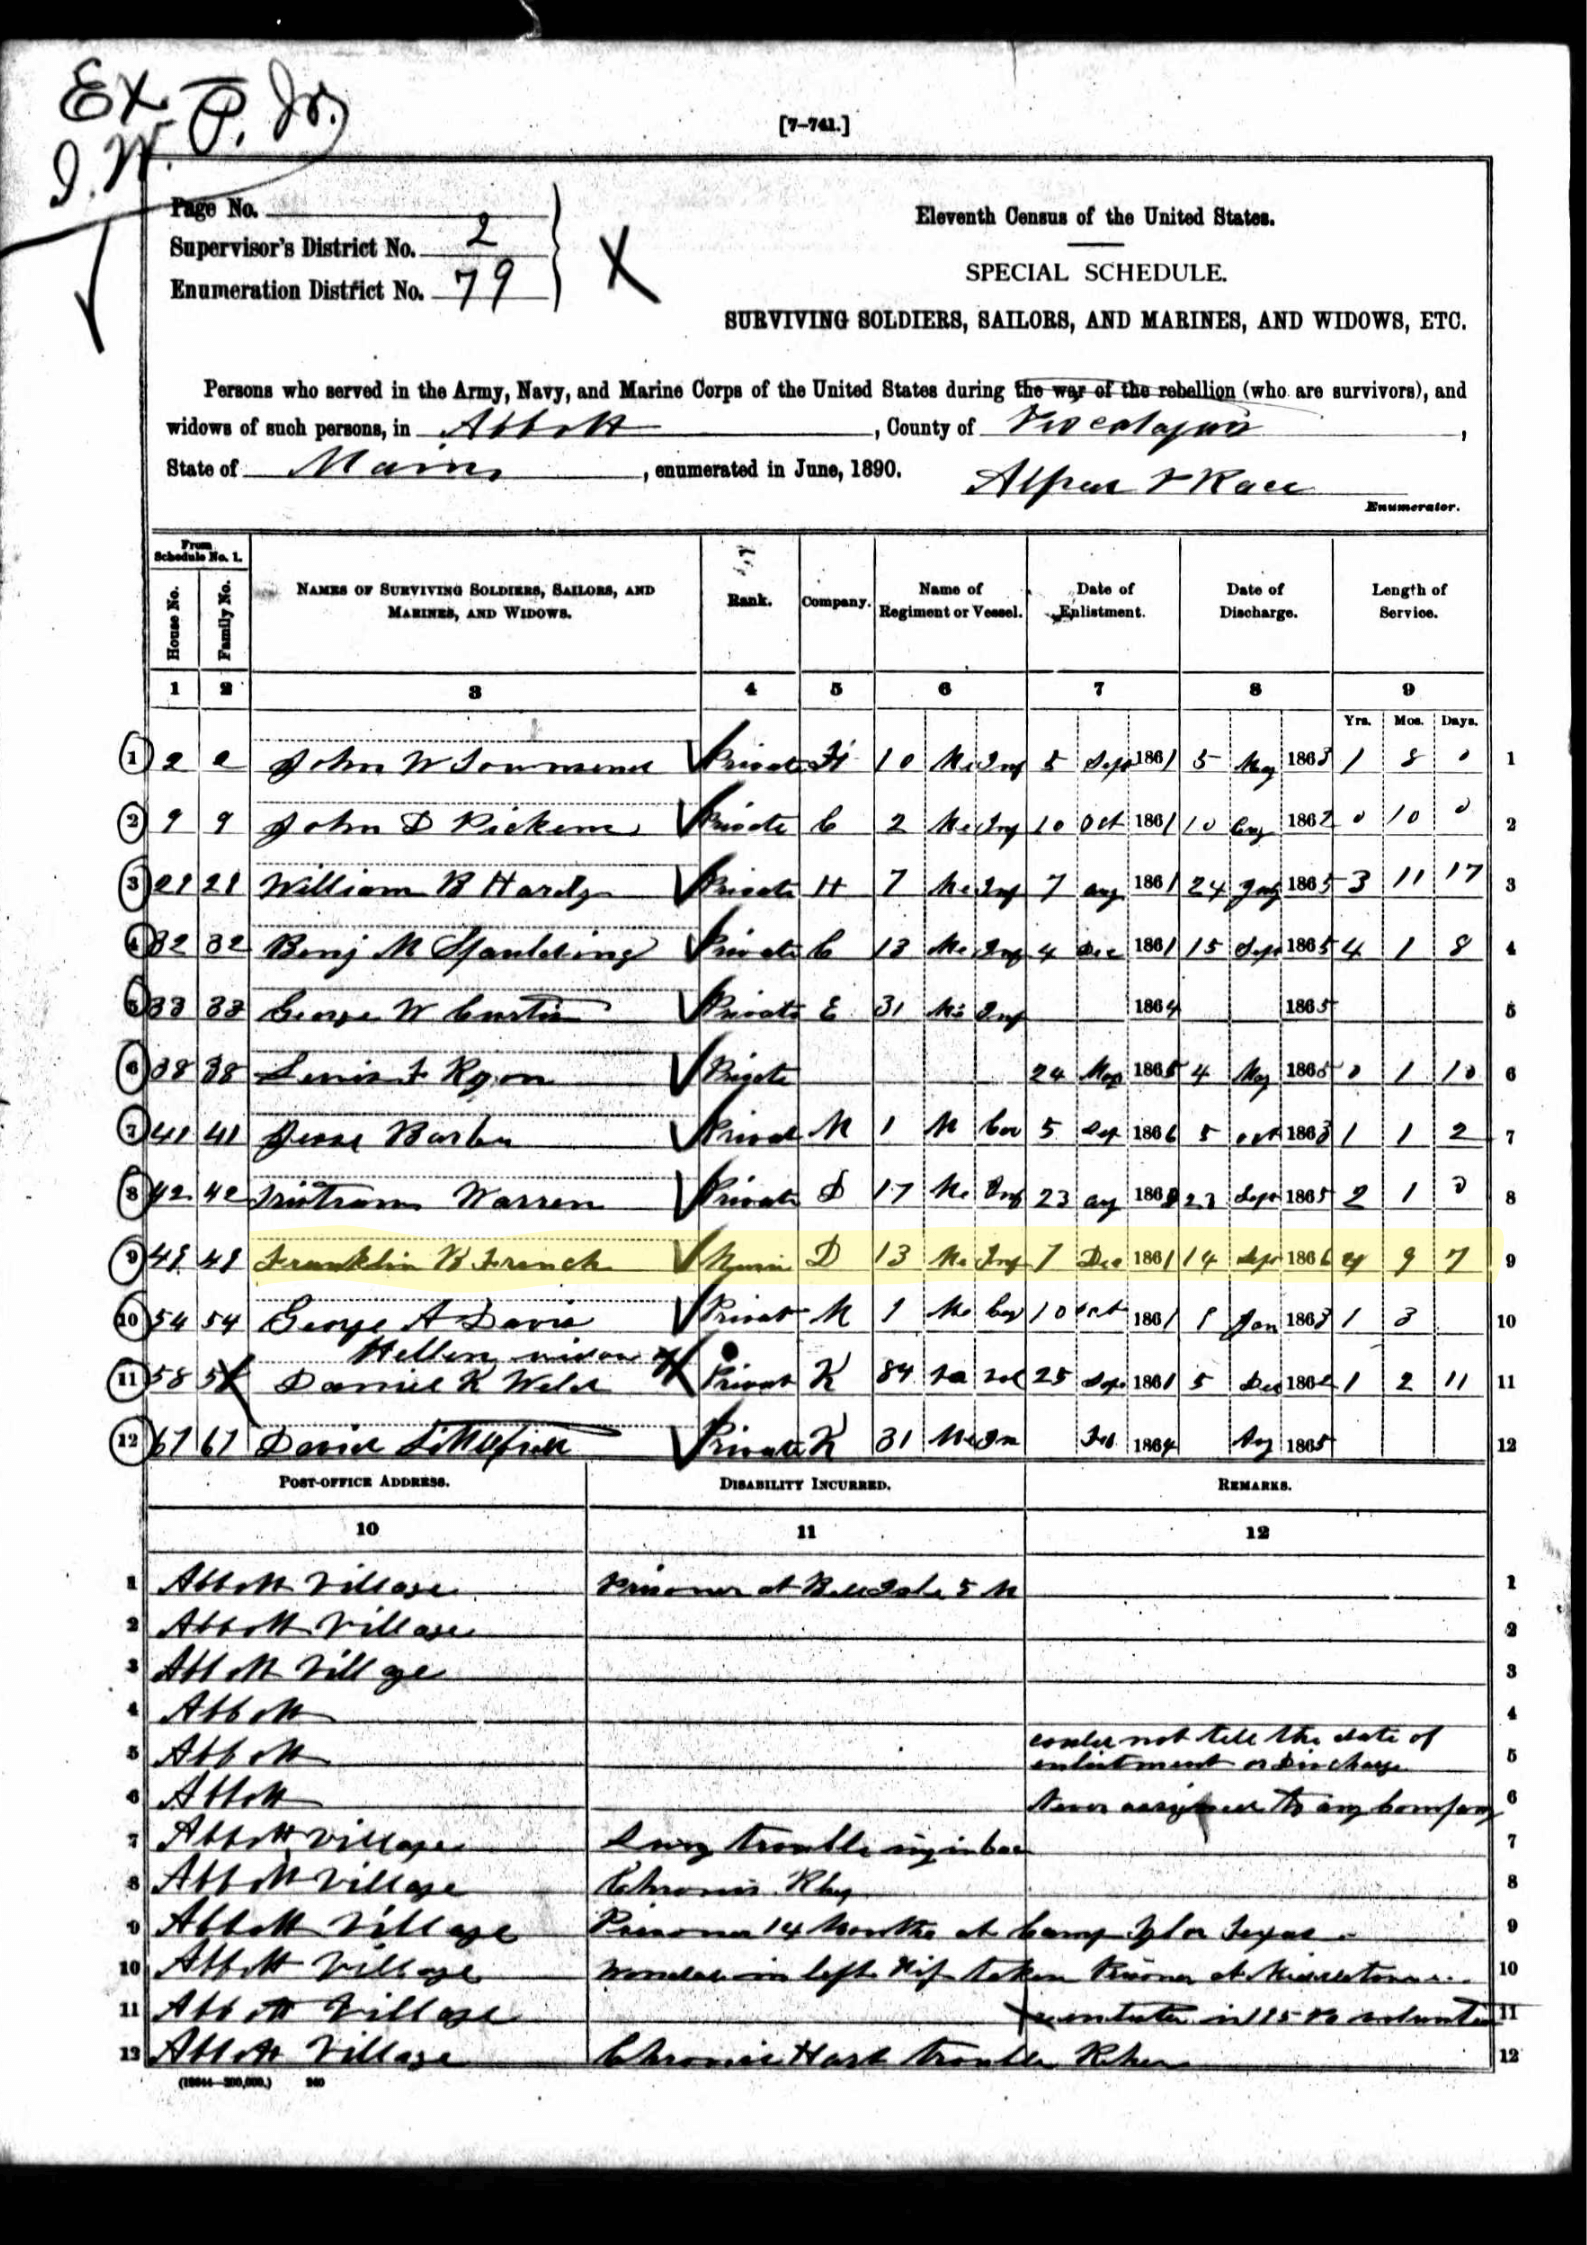 Ex. P. Jr.
J. W.
[7–741.]
Page No.
Supervisor's District No. 2
Enumeration District No. 79
X
Eleventh Census of the United States.
SPECIAL SCHEDULE.
SURVIVING SOLDIERS, SAILORS, AND MARINES, AND WIDOWS, ETC.
Persons who served in the Army, Navy, and Marine Corps of the United States during the war of the rebellion (who are survivors), and
widows of such persons, in Abbott, County of
State of Maine, enumerated in June, 1890.
Enumerator.
From Schedule No. 1.
House No. Family No. NAMES OF SURVIVING SOLDIERS, SAILORS, AND MARINES, AND WIDOWS. Rank. Company. Name of Regiment or Vessel. Date of Enlistment. Date of Discharge. Length of Service.
1 2 3 4 5 6 7 8 9
Yrs. Mos. Days.
1 2 2 John W Townsend Private H 10 Me Inf 5 Sept 1861 5 May 1863 1 8 0 1
2 9 9 John D Pickens Private C 2 Me Inf 10 Oct 1861 10 Aug 1862 0 10 0 2
3 21 21 William B Hardy Private H 7 Me Inf 7 Aug 1861 24 July 1865 3 11 17 3
4 32 32 Benj M Spaulding Private C 13 Me Inf 4 Dec 1861 15 Sept 1865 4 1 8 4
5 33 33 George W Curtis Private E 31 Me Inf 1864 1865 5
6 38 38 Private 24 1865 4 May 1865 0 1 10 6
7 41 41 Jesse Barber Private M 1 M Cav 5 Sep 186 5 Oct 1863 1 1 2 7
8 42 42 Tristram Warren Private D 17 Me Inf 23 Aug 186 23 Sept 1865 2 1 0 8
9 Franklin B French D 13 Me Inf 7 Dec 1861 14 Sept 186 9 7 9
10 54 54 George A Davis Private M 1 Me Cav 10 Oct 1861 Jan 1863 1 3 10
Hellen widow
11 58 58 Daniel K Private K 84 25 Sep 1861 5 Dec 186 1 2 11 11
12 67 67 David Littlefield Private K 31 Me In Feb 1864 Aug 1865 12
POST-OFFICE ADDRESS. DISABILITY INCURRED. REMARKS.
10 11 12
1 Abbott Village Prisoner at Bell Isle 5 M 1
2 Abbott Village 2
3 Abbott Village 3
4 Abbott 4
5 Abbott could not tell the date of enlistment or Discharge 5
6 Abbott Never assigned to any Company 6
7 Abbott Village Lung trouble 7
8 Abbott Village Chronic 8
9 Abbott Village Prisoner 14 Months at Camp Texas 9
10 Abbott Village Wounded in left Hip taken Prisoner at 10
11 Abbott Village in 11
12 Abbott Village Chronic Hart trouble 12